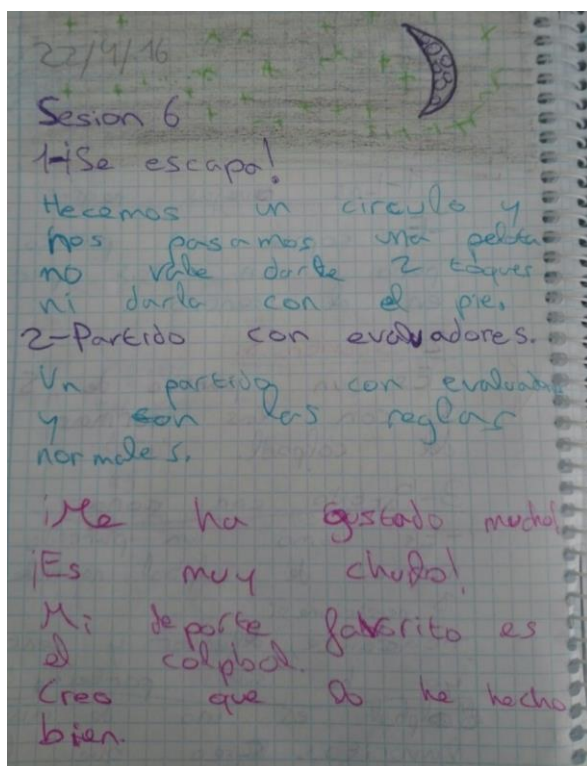 22/4/16
Sesion 6
1-¡Se escapa!
Hacemos un circulo y
nos pasamos una pelota
no vale darle 2 toques
ni darla con el pie.
2-Partido con evaluadores.
Un partido con evaluador
y con las reglas
normales.
¡Me ha gustado mucho!
¡Es muy chulo!
Mi deporte favorito es
el colpbol.
Creo que lo he hecho
bien.